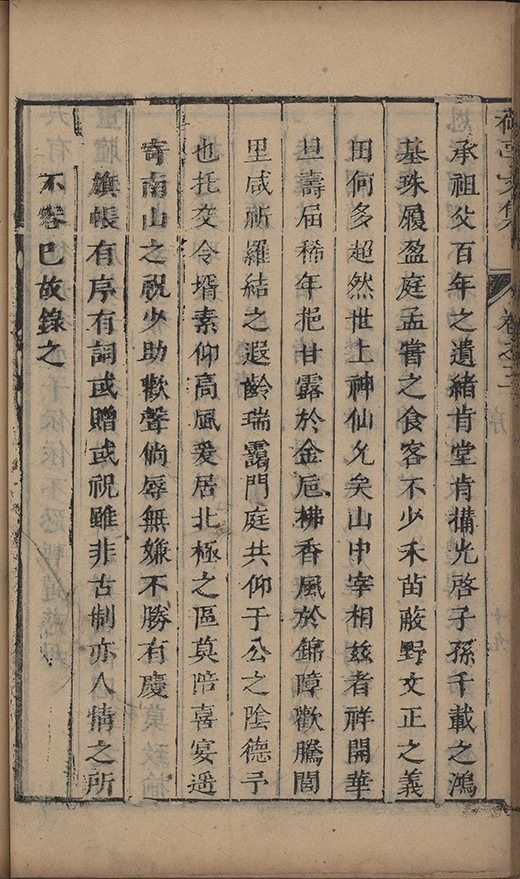 承祖父百年之遺緒肯堂肯搆光啓子孫千載之鴻
基珠履盈庭孟嘗之食客不少禾苗蔽野文正之義
田何多超然世上神仙允矣山中宰相兹者祥開華
旦壽屆稀年挹甘露於金巵拂香風於錦障歡騰閭
里咸祈羅結之遐齡瑞靄門庭共仰于公之陰德予
也托交令壻素仰高風爰居北極之區莫陪喜宴遥
寄南山之祝少助歡聲倘辱無嫌不勝有慶
旗帳有序有詞或贈或祝雖非古制亦人情之所
不容已故錄之
卷之三